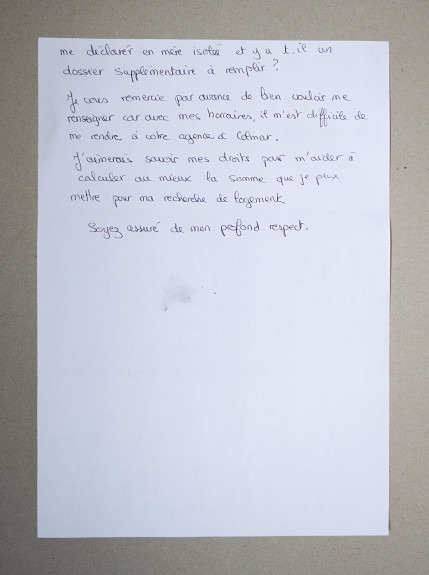 me déclarer en mère isolée et y a t.il un
dossier supplémentaire à remplir ?
Je vous remercie par avance de bien vouloir me
renseigner car avec mes horraires, il m'est difficile de
me rendre à votre agence à Colmar.
J'aimerais savoir mes droits pour m'aider à
calculer au mieux la somme que je peux
mettre pour ma recherche de logement.
Soyez assuré de mon profond respect.